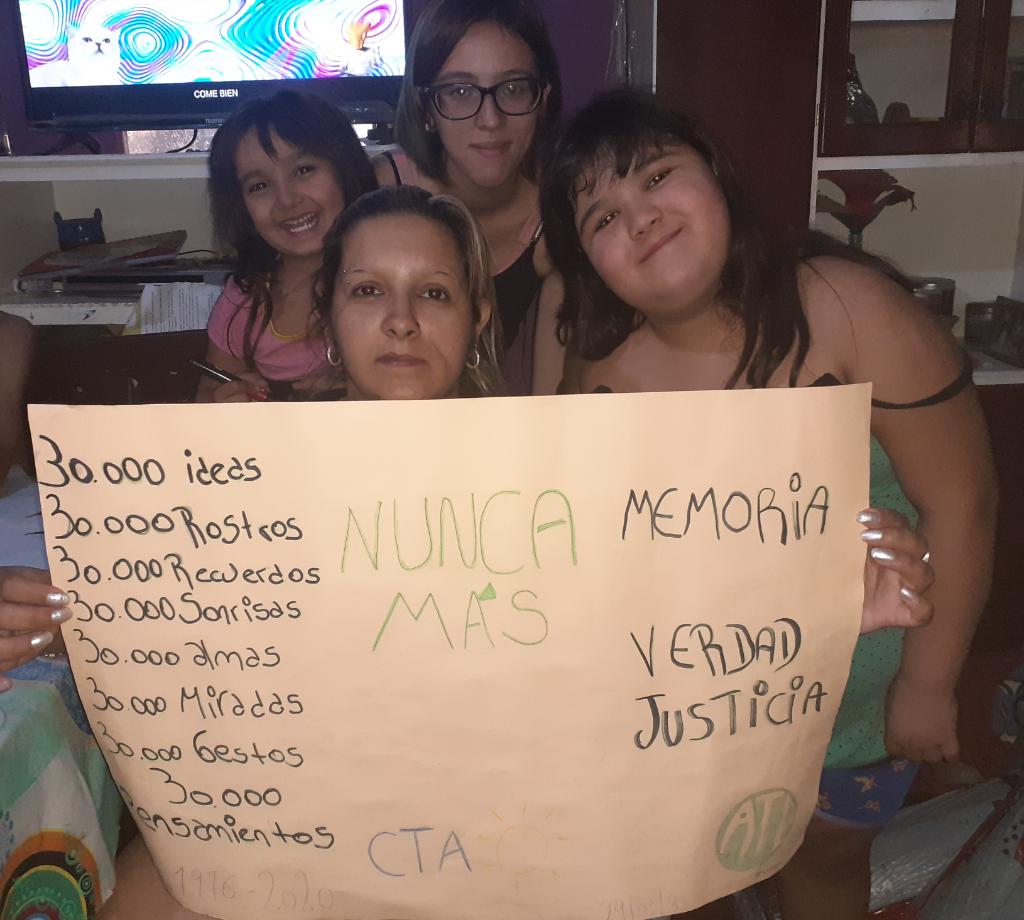 COME BIEN
30.000 ideas
30.000 Rostros
30.000 Recuerdos
30.000 Sonrisas
30.000 almas
30.000 Miradas
30.000 Gestos
30.000
Pensamientos
1976-2020
NUNCA
MÁS
CTA
MEMORiA
VERDAD
JUSTiCiA